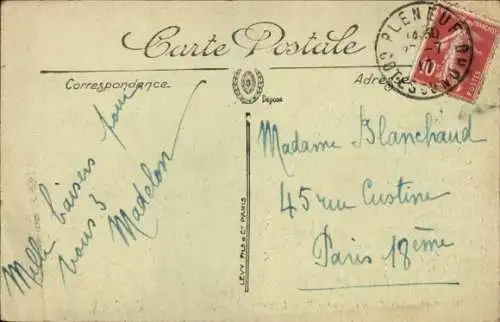 Carte Postale
Correspondance
Adresse
Déposé
Mille baisers pour
vous 3
Madelon
Madame Blanchaud
45 rue Custine
Paris 18ème
LEVY FILS & Cie PARIS
PLENEUF
COTES DU NORD
10c
POSTES